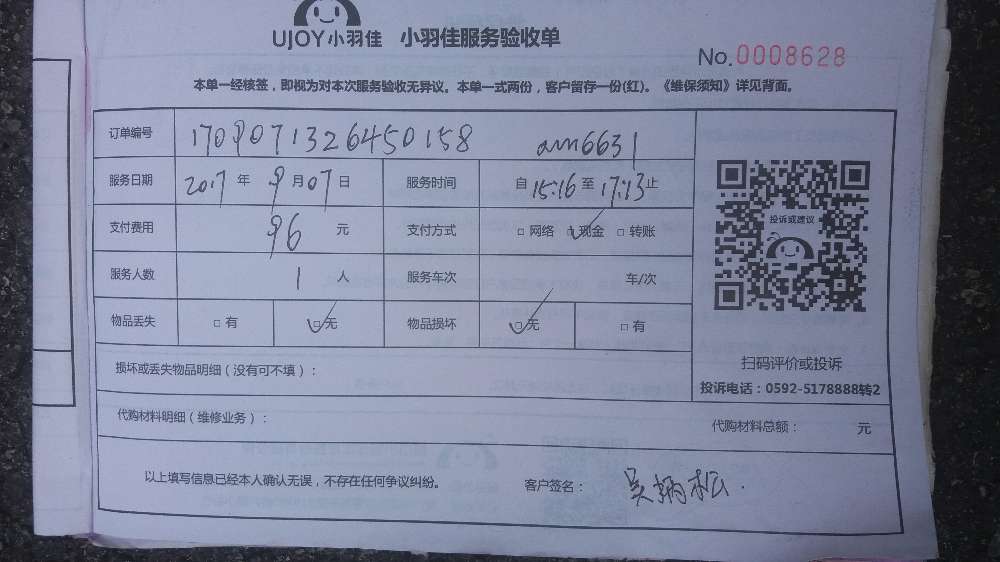 UJOY小羽佳 小羽佳服务验收单
No.0008628
本单一经核签，即视为对本次服务验收无异议。本单一式两份，客户留存一份(红)。《维保须知》详见背面。
订单编号 1709071326450158 am6631
服务日期 2017 年 9 月 07 日 服务时间 自 15:16 至 17:13 止
支付费用 96 元 支付方式 □ 网络 □ 现金 □ 转账
服务人数 1 人 服务车次 车/次
物品丢失 □ 有 □ 无 物品损坏 □ 无 □ 有
投诉或建议
扫码评价或投诉
投诉电话：0592-5178888转2
损坏或丢失物品明细（没有可不填）：
代购材料明细（维修业务）： 代购材料总额： 元
以上填写信息已经本人确认无误，不存在任何争议纠纷。 客户签名： 吴炳松